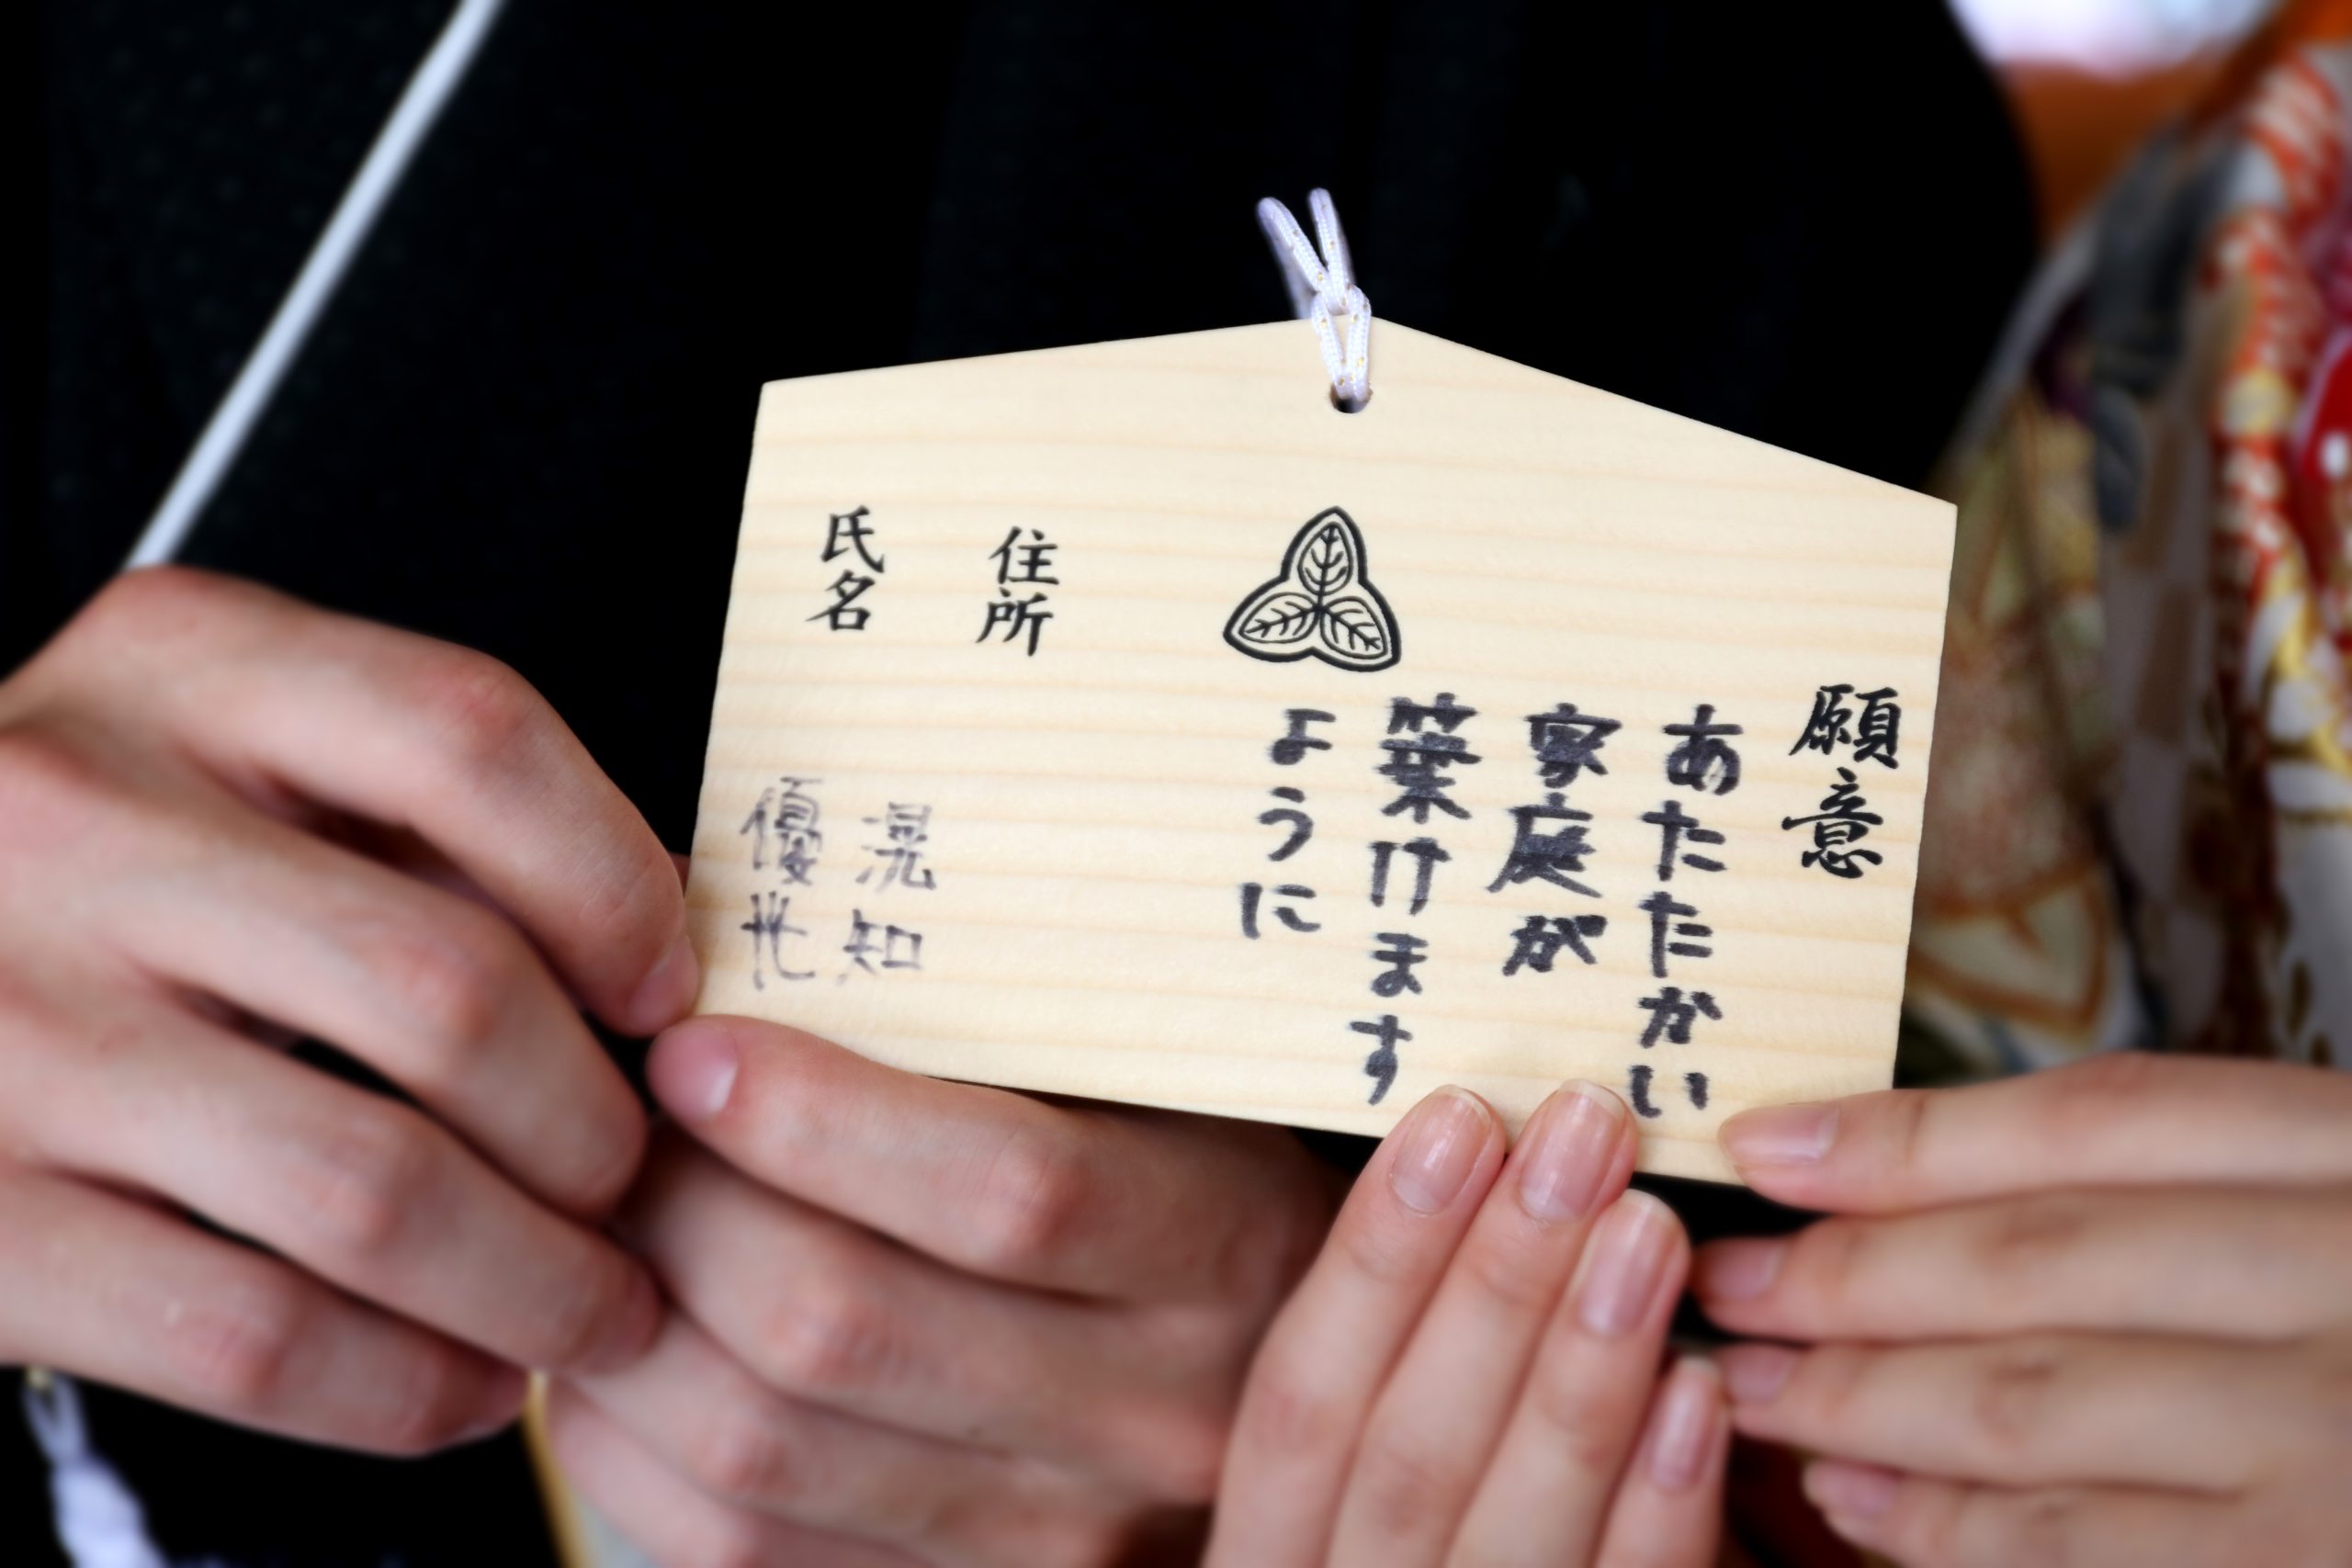 願意
あたたかい
家庭が
築けます
ように
住所
氏名
滉知
優花